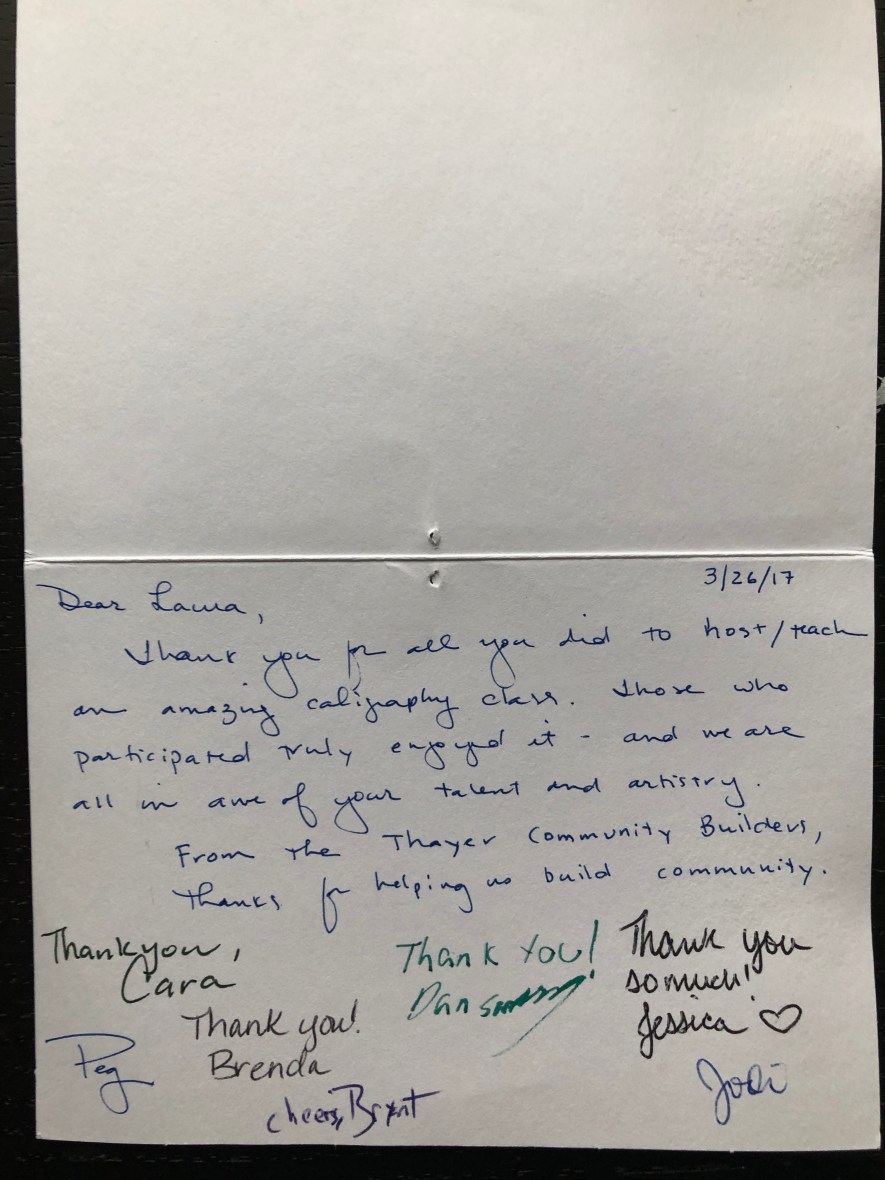 3/26/17
Dear Laura,
Thank you for all you did to host/teach
an amazing caligraphy class. Those who
participated truly enjoyed it - and we are
all in awe of your talent and artistry.
From the Thayer Community Builders,
thanks for helping us build community.
Thank you,
Cara
Thank You!
Dan
Thank you
so much!
Jessica ♡
Thank you!
Brenda
Peg
Jodi
cheers, Bryant